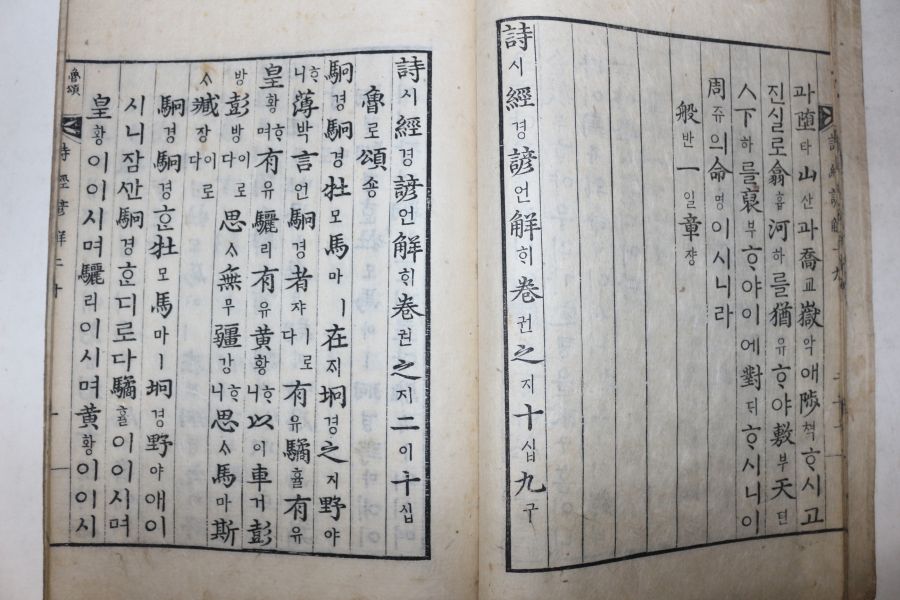 과墮타山산과喬교嶽악애陟척ᄒᆞ시고
진실로翕흡河하를猶유ᄒᆞ야敷부天텬
ㅅ下하를裒부ᄒᆞ야이에對ᄃᆡᄒᆞ시니이
周쥬의命명이시니라
般반一일章쟝
詩시經경諺언解ᄒᆡ卷권之지十십九구
詩시經경諺언解ᄒᆡ卷권之지二이十십
魯로頌숑
駉경駉경牡모馬마ㅣ在ᄌᆡ坰경之지野야
ᄒᆞ니薄박言언駉경者쟈ㅣ로다有유驈휼有유
皇황ᄒᆞ며有유驪리有유黃황ᄒᆞ니以이車거彭
방彭방이로다思ᄉᆞ無무疆강ᄒᆞ니思ᄉᆞ馬마斯
ᄉᆞ臧장이로다
駉경駉경ᄒᆞᆫ牡모馬마ㅣ坰경野야애이
시니잠ᄭᅡᆫ駉경ᄒᆞᆫ디로다驈휼이이시며
皇황이이시며驪리이시며黃황이이시
魯頌
詩經諺解二十